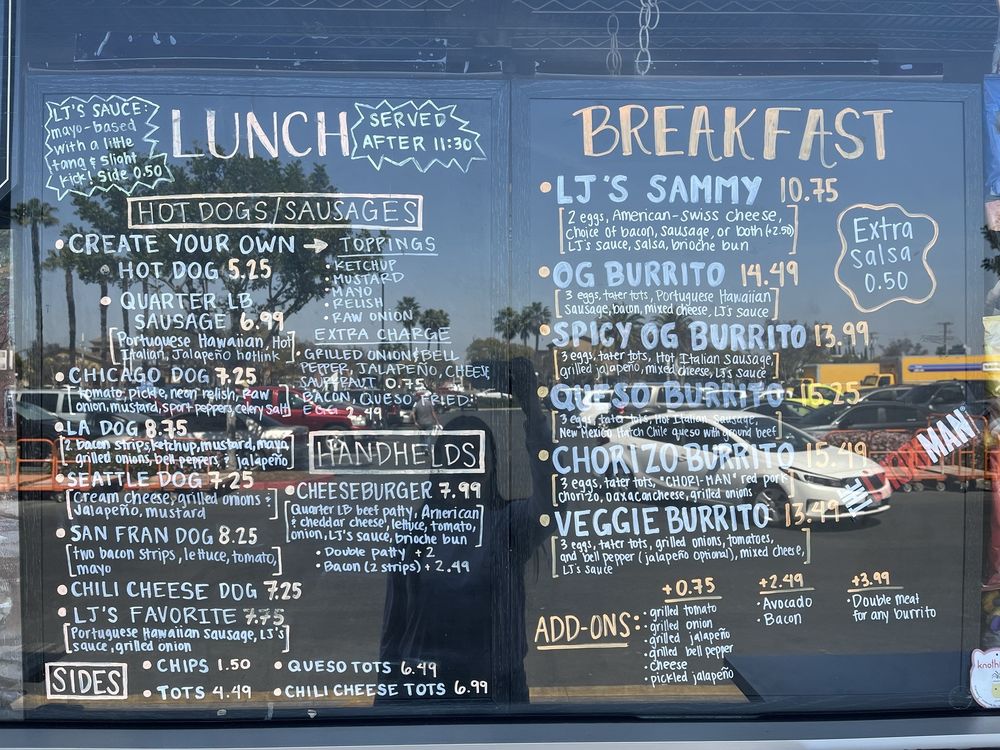 LJ'S SAUCE:
mayo-based
with a little
tang & slight
kick! Side 0.50
LUNCH
SERVED
AFTER 11:30
HOT DOGS/SAUSAGES
• CREATE YOUR OWN → TOPPINGS
• HOT DOG 5.25
• QUARTER LB
SAUSAGE 6.99
[Portuguese Hawaiian, Hot
Italian, Jalapeño hotlink]
• KETCHUP
• MUSTARD
• MAYO
• RELISH
• RAW ONION
EXTRA CHARGE
• GRILLED ONION & BELL
PEPPER, JALAPEÑO, CHEESE,
SAURKRAUT 0.75
BACON, QUESO, FRIED
EGG 2.49
• CHICAGO DOG 7.25
[tomato, pickle, neon relish, raw
onion, mustard, sport peppers, celery salt]
• LA DOG 8.75
[2 bacon strips, ketchup, mustard, mayo,
grilled onions, bell peppers, & jalapeño]
• SEATTLE DOG 7.25
[Cream cheese, grilled onions &
Jalapeño, mustard]
• SAN FRAN DOG 8.25
[two bacon strips, lettuce, tomato,
mayo]
• CHILI CHEESE DOG 7.25
• LJ'S FAVORITE 7.75
[Portuguese Hawaiian sausage, LJ's
sauce, grilled onion]
HANDHELDS
• CHEESEBURGER 7.99
[Quarter LB beef patty, American
& cheddar cheese, lettuce, tomato,
onion, LJ's sauce, brioche bun]
• Double patty + 2
• Bacon (2 strips) + 2.49
SIDES
• CHIPS 1.50
• TOTS 4.49
• QUESO TOTS 6.49
• CHILI CHEESE TOTS 6.99
BREAKFAST
• LJ'S SAMMY 10.75
[2 eggs, American-swiss cheese,
Choice of bacon, sausage, or both (+2.50)
LJ's sauce, salsa, brioche bun]
Extra
Salsa
0.50
• OG BURRITO 14.49
[3 eggs, tater tots, Portuguese Hawaiian
Sausage, bacon, mixed cheese, LJ's sauce]
• SPICY OG BURRITO 13.99
[3 eggs, tater tots, Hot Italian Sausage,
grilled jalapeño, mixed cheese, LJ's sauce]
• QUESO BURRITO 16.25
[3 eggs, tater tots, Hot Italian Sausage,
New Mexico Hatch Chile queso with ground beef]
• CHORIZO BURRITO 15.49
[3 eggs, tater tots, "CHORI-MAN" red pork
chorizo, oaxaca cheese, grilled onions]
• VEGGIE BURRITO 13.49
[3 eggs, tater tots, grilled onions, tomatoes,
and bell pepper (jalapeño optional), mixed cheese,
LJ's sauce]
ADD-ONS:
+0.75
• grilled tomato
• grilled onion
• grilled jalapeño
• grilled bell pepper
• cheese
• pickled jalapeño
+2.49
• Avocado
• Bacon
+3.99
• Double meat
for any burrito
MAN